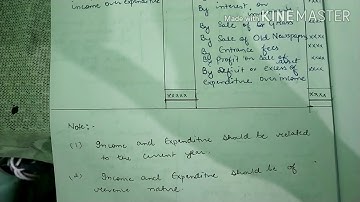 income over expenditure
By interest on
Made with KINEMASTER
By Sale of Grass
By Sale of Old Newspapers xxxx
By Entrance fees xxxx
By Profit on sale of asset xxxx
By Deficit or Excess of xxxx
Expenditure over income
xxxxx xxxxx
Note:-
(1) Income and Expenditure should be related
to the current year.
(2) Income and Expenditure should be of
revenue nature.